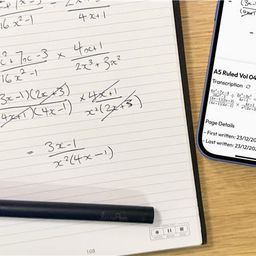 16x² - 1
4x + 1
+ 7x - 3 × 4x+1
16x² - 1 2x³ + 3x²
3x-1)(2x+3) × 4x+1
4x+1)(4x-1) x²(2x+3)
= 3x-1
x²(4x-1)
108
A5 Ruled Vol 04
Transcription
Page Details
- First written: 23/12/20
- Last written: 23/12/20